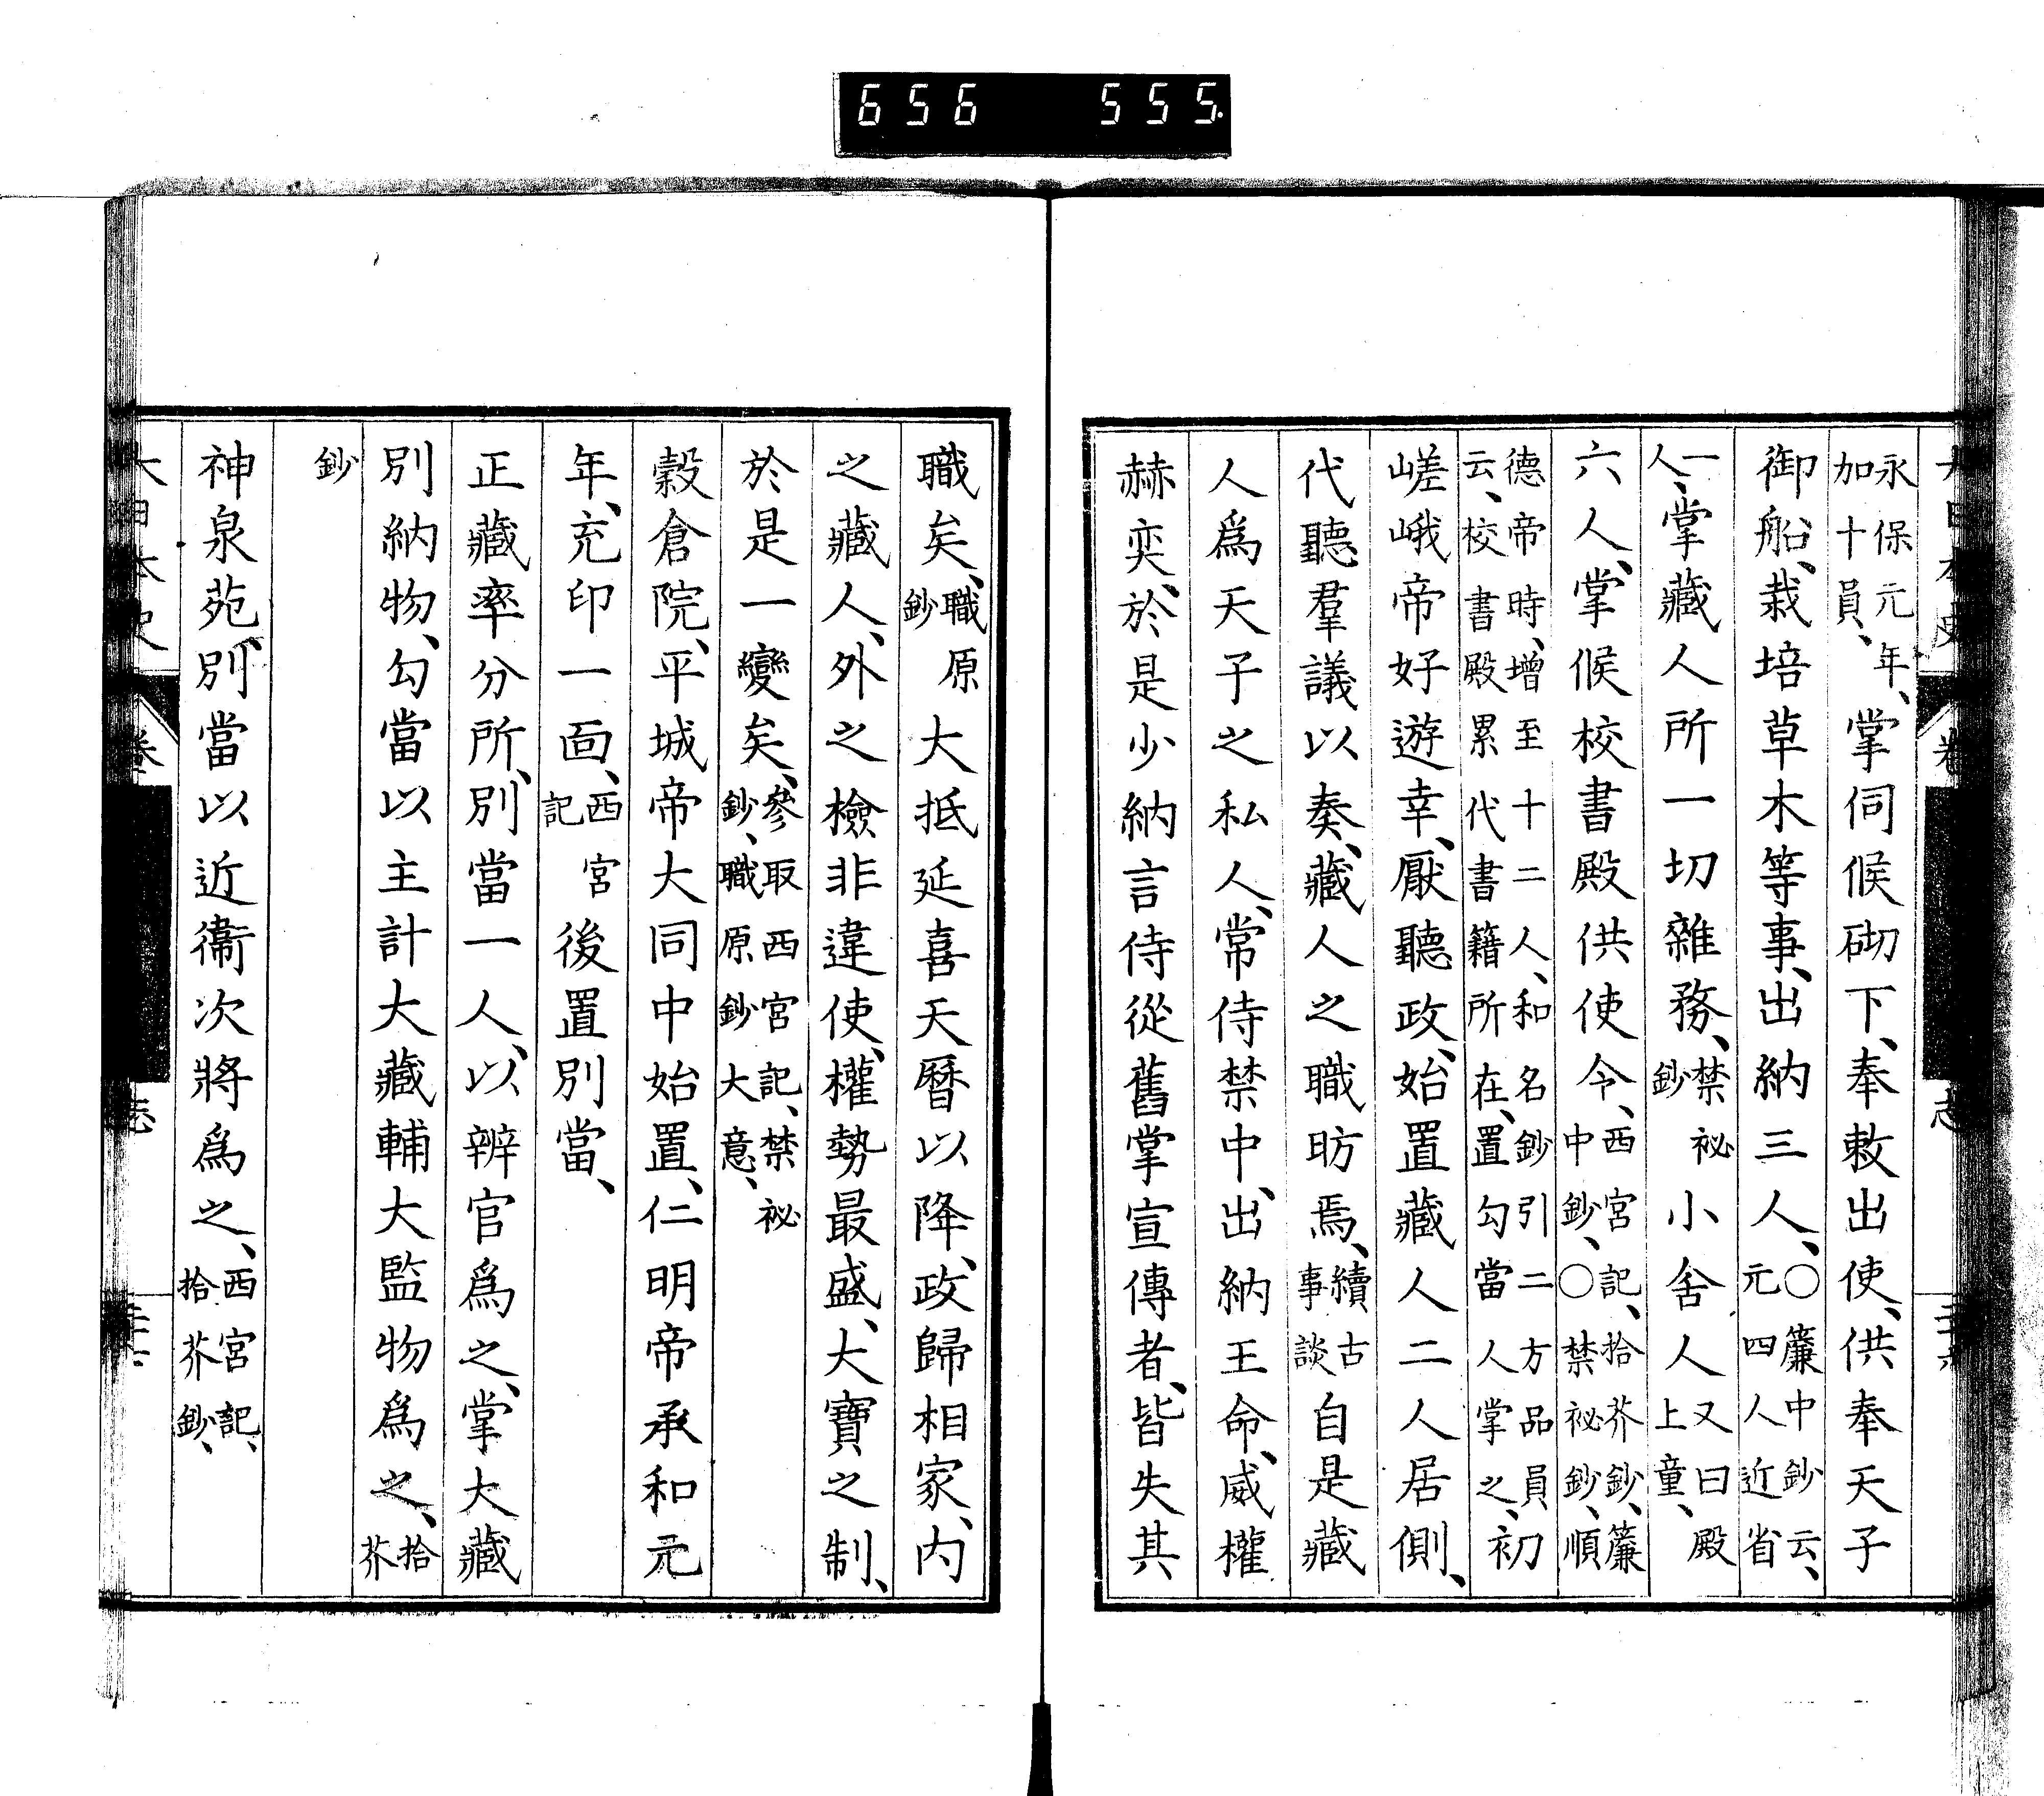 656 555
永保元年、加十員、掌伺候砌下、奉敕出使、供奉天子
御船、栽培草木等事、出納三人、〇簾中鈔云、元四人近省
一人、掌藏人所一切雜務、禁祕鈔小舍人又曰殿上童、
六人、掌候校書殿供使令、西宮記、拾芥鈔、簾中鈔、〇禁祕鈔、順
德帝時、增至十二人、和名鈔引二方品員云、校書殿累代書籍所在、置勾當人掌之、初
嵯峨帝好遊幸、厭聽政、始置藏人二人居側、
代聽羣議以奏、藏人之職昉焉、續古事談自是藏
人爲天子之私人、常侍禁中、出納王命、威權
赫奕、於是少納言侍從舊掌宣傳者、皆失其
職矣、職原鈔大抵延喜天曆以降、政歸相家、内
之藏人、外之檢非違使、權勢最盛、大寶之制、
於是一變矣、參取西宮記、禁祕鈔、職原鈔大意、
穀倉院、平城帝大同中始置、仁明帝承和元
年、充印一面、西宮記後置別當、
正藏率分所、別當一人、以辨官爲之、掌大藏
別納物、勾當以主計大藏輔大監物爲之、拾芥
鈔
神泉苑、別當以近衞次將爲之、西宮記、拾芥鈔、
大日本史 卷 志